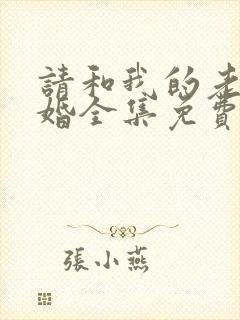 請和我的老
婚全集免費
張小燕